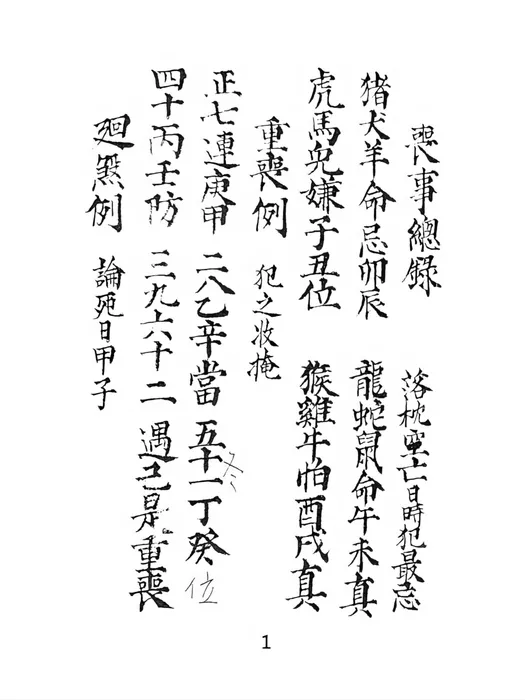 喪事總錄　落枕空亡日時犯最忌
猪犬羊命忌卯辰　龍蛇鼠命午未真
虎馬兎嫌子丑位　猴雞牛怕酉戌真
重喪例　犯之收掩
正七連庚甲　二八乙辛當　五十一丁癸位
四十丙壬防　三九六十二　遇己是重喪
廻煞例　論死日甲子
1